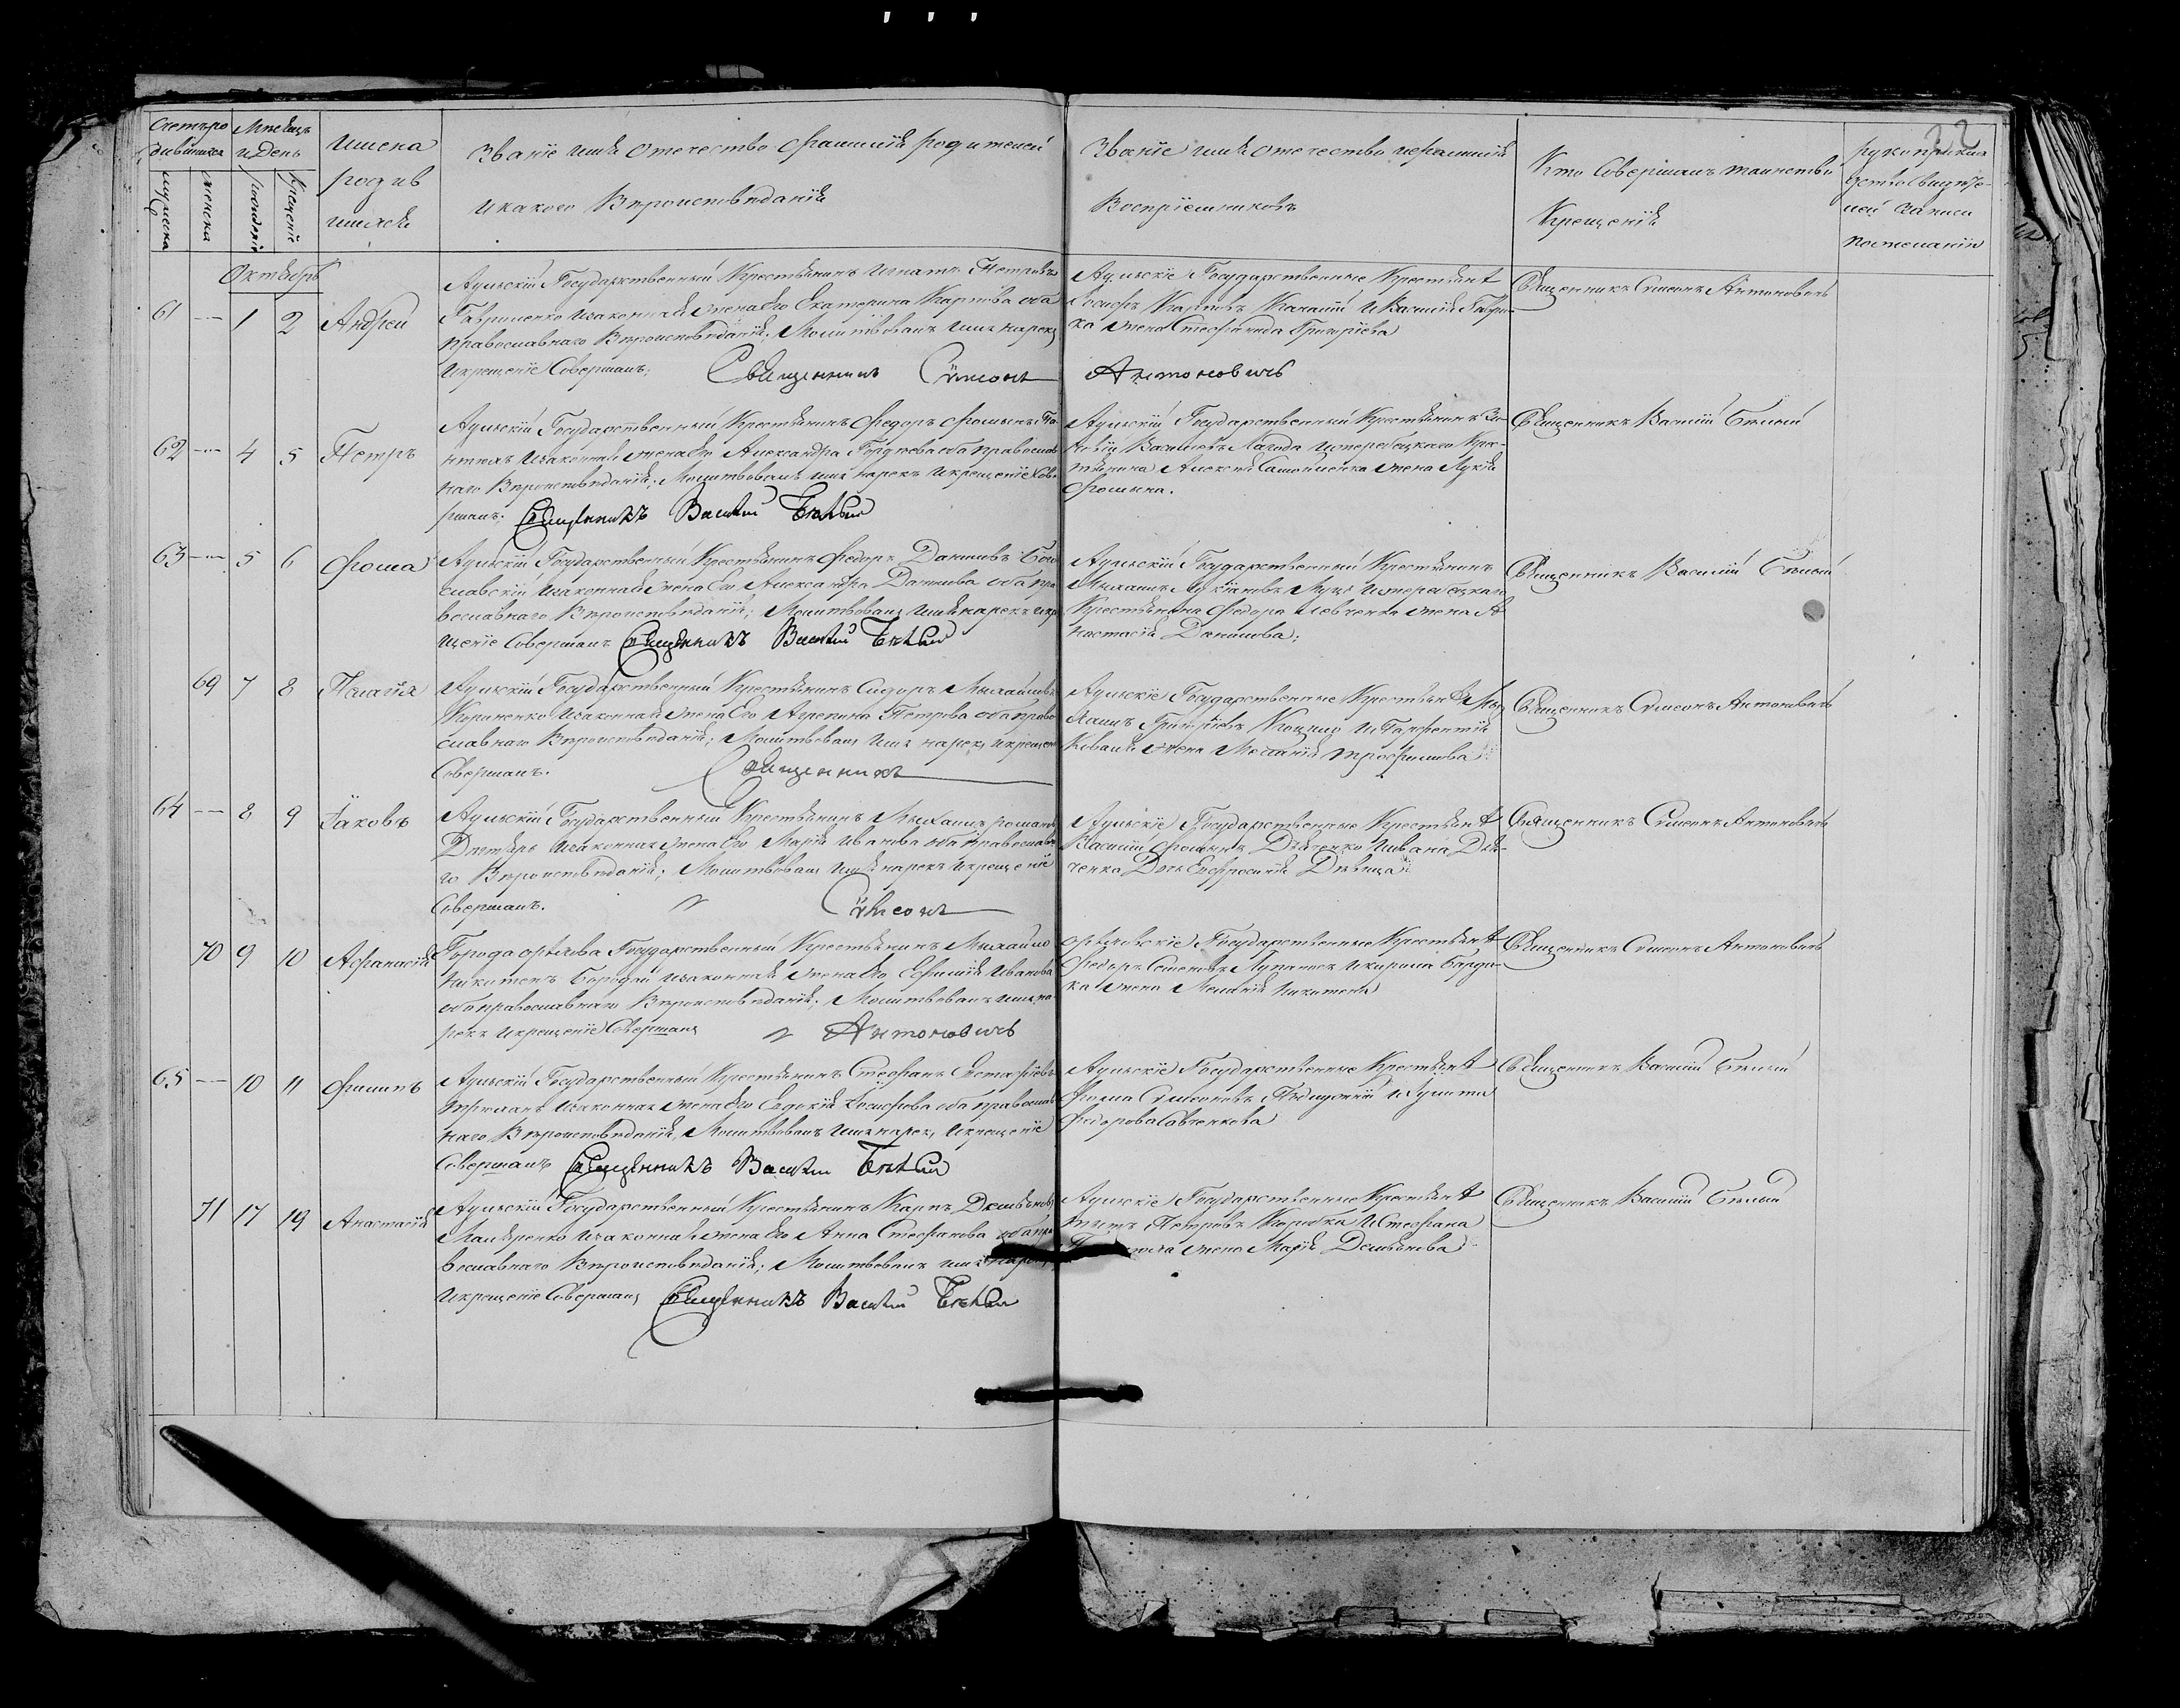 32
Счетъ ро
дившихся
Мѣсяцъ
и День
мужеска
женска
рожденія
крещеніе
имена
родив
шихся
Званіе имя отечество фамилія родителей
и какого Вѣроисповѣданія
Званіе имя отечество и фамилія
Воспріемниковъ
Кто Совершалъ таинство
Крещенія
рукоприклад
ство свидѣте-
лей записи
по желанію
Октябрь
61 — 1 2 Андрей
Аульскій Государственный Крестьянинъ Игнатъ Петровъ
Гавриленко и законная жена его Екатерина Карпова оба
православнаго Вѣроисповѣданія; Молитвовалъ имя нарекъ
и крещеніе Совершалъ; Священникъ Сѵмеонъ Антоновичъ
Аульскіе Государственные Крестьяне
Іосифъ Карповъ и Василія Гаври-
ка жена Стефанида Григоріева
Священникъ Сѵмеонъ Антоновичъ
62 — 4 5 Петръ
Аульскій Государственный Крестьянинъ Федоръ Фоминъ
и законная жена его Александра Гордѣева оба православ
наго Вѣроисповѣданія; Молитвовалъ имя нарекъ и крещеніе Сове
ршалъ; Священникъ Василій Бѣлый
Аульскій Государственный Крестьянинъ
Васильевъ Лагода и
Алексѣя Самойленка жена
Фомина.
Священникъ Василій Бѣлый
63 — 5 6 Фома
Аульскій Государственный Крестьянинъ Федоръ Даниловъ Бог
славскій и законная жена его Александра Данилова оба пра
вославнаго Вѣроисповѣданія; Молитвовалъ имя нарекъ и кре
щеніе Совершалъ Священникъ Василій Бѣлый
Аульскій Государственный Крестьянинъ
Михаилъ
Крестьянина Федора Левченка жена А
настасія Данилова;
Священникъ Василій Бѣлый
69 7 8 Пелагія
Аульскій Государственный Крестьянинъ Сидоръ Михайловъ
Короненко и законная жена его Агрепина Петрова оба право
славнаго Вѣроисповѣданія; Молитвовалъ имя нарекъ и крещеніе
Совершалъ. Священникъ
Аульскіе Государственные Крестьяне Ми
хаилъ Григоріевъ Коцюю и Парфентія
Коваля жена Меланія Трофимова
Священникъ Сѵмеонъ Антоновичъ
64 — 8 9 Іаковъ
Аульскій Государственный Крестьянинъ Михаилъ Романовъ
Дегтярь и законная жена его Марія Иванова оба православна
го Вѣроисповѣданія; Молитвовалъ имя нарекъ и крещеніе
Совершалъ. Сѵмеонъ
Аульскіе Государственные Крестьяне
Василій Фоминъ Дяченко и Ивана Дя-
ченка Дочь Евфросинія Дѣвица
Священникъ Сѵмеонъ Антоновичъ
70 9 10 Афанасія
Города Орѣхова Государственный Крестьянинъ Михайло
Никитенъ Бородай и законная жена его Ефимія Иванова
оба православнаго Вѣроисповѣданія; Молитвовалъ имя на
рекъ и крещеніе Совершалъ Антоновичъ
Орѣховскіе Государственные Крестьяне
Федоръ Семеновъ
ка жена Меланія Никитена
Священникъ Сѵмеонъ Антоновичъ
65 — 10 11 Филипъ
Аульскій Государственный Крестьянинъ Стефанъ Евстафіевъ
и законная жена его Евдокія Іосифова оба православ
наго Вѣроисповѣданія, Молитвовалъ имя нарекъ, и крещеніе
Совершалъ Священникъ Василій Бѣлый
Аульскіе Государственные Крестьяне
Фома Сѵмеоновъ и Улита
Федорова Савченкова
Священникъ Василій Бѣлый
71 17 19 Анастасія
Аульскій Государственный Крестьянинъ Карпъ Демьяновъ
Маляренко и законная жена его Анна Стефанова оба пра
вославнаго Вѣроисповѣданія; Молитвовалъ имя нарекъ
и крещеніе Совершалъ Священникъ Василій Бѣлый
Аульскіе Государственные Крестьяне
Титъ Петровъ Коробка и Стефана
жена Марія Демьянова
Священникъ Василій Бѣлый